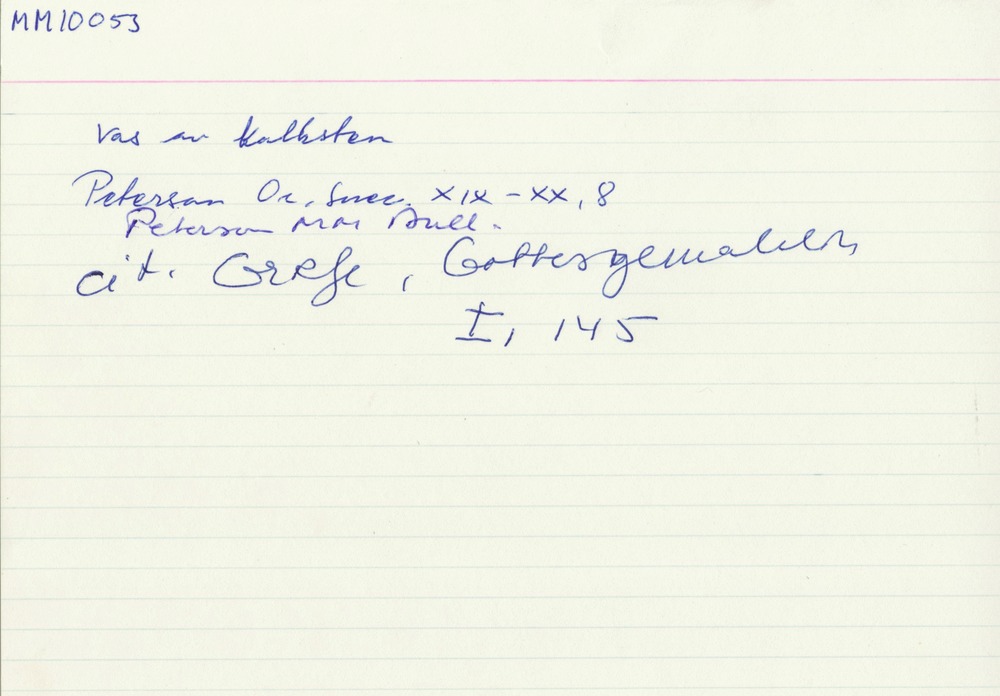 MM10053
Vas av kalksten
Peterson Or. Suec. XIX-XX, 8
Peterson MM Bull.
cit. Grefe, Gottesgemahlin
I, 145